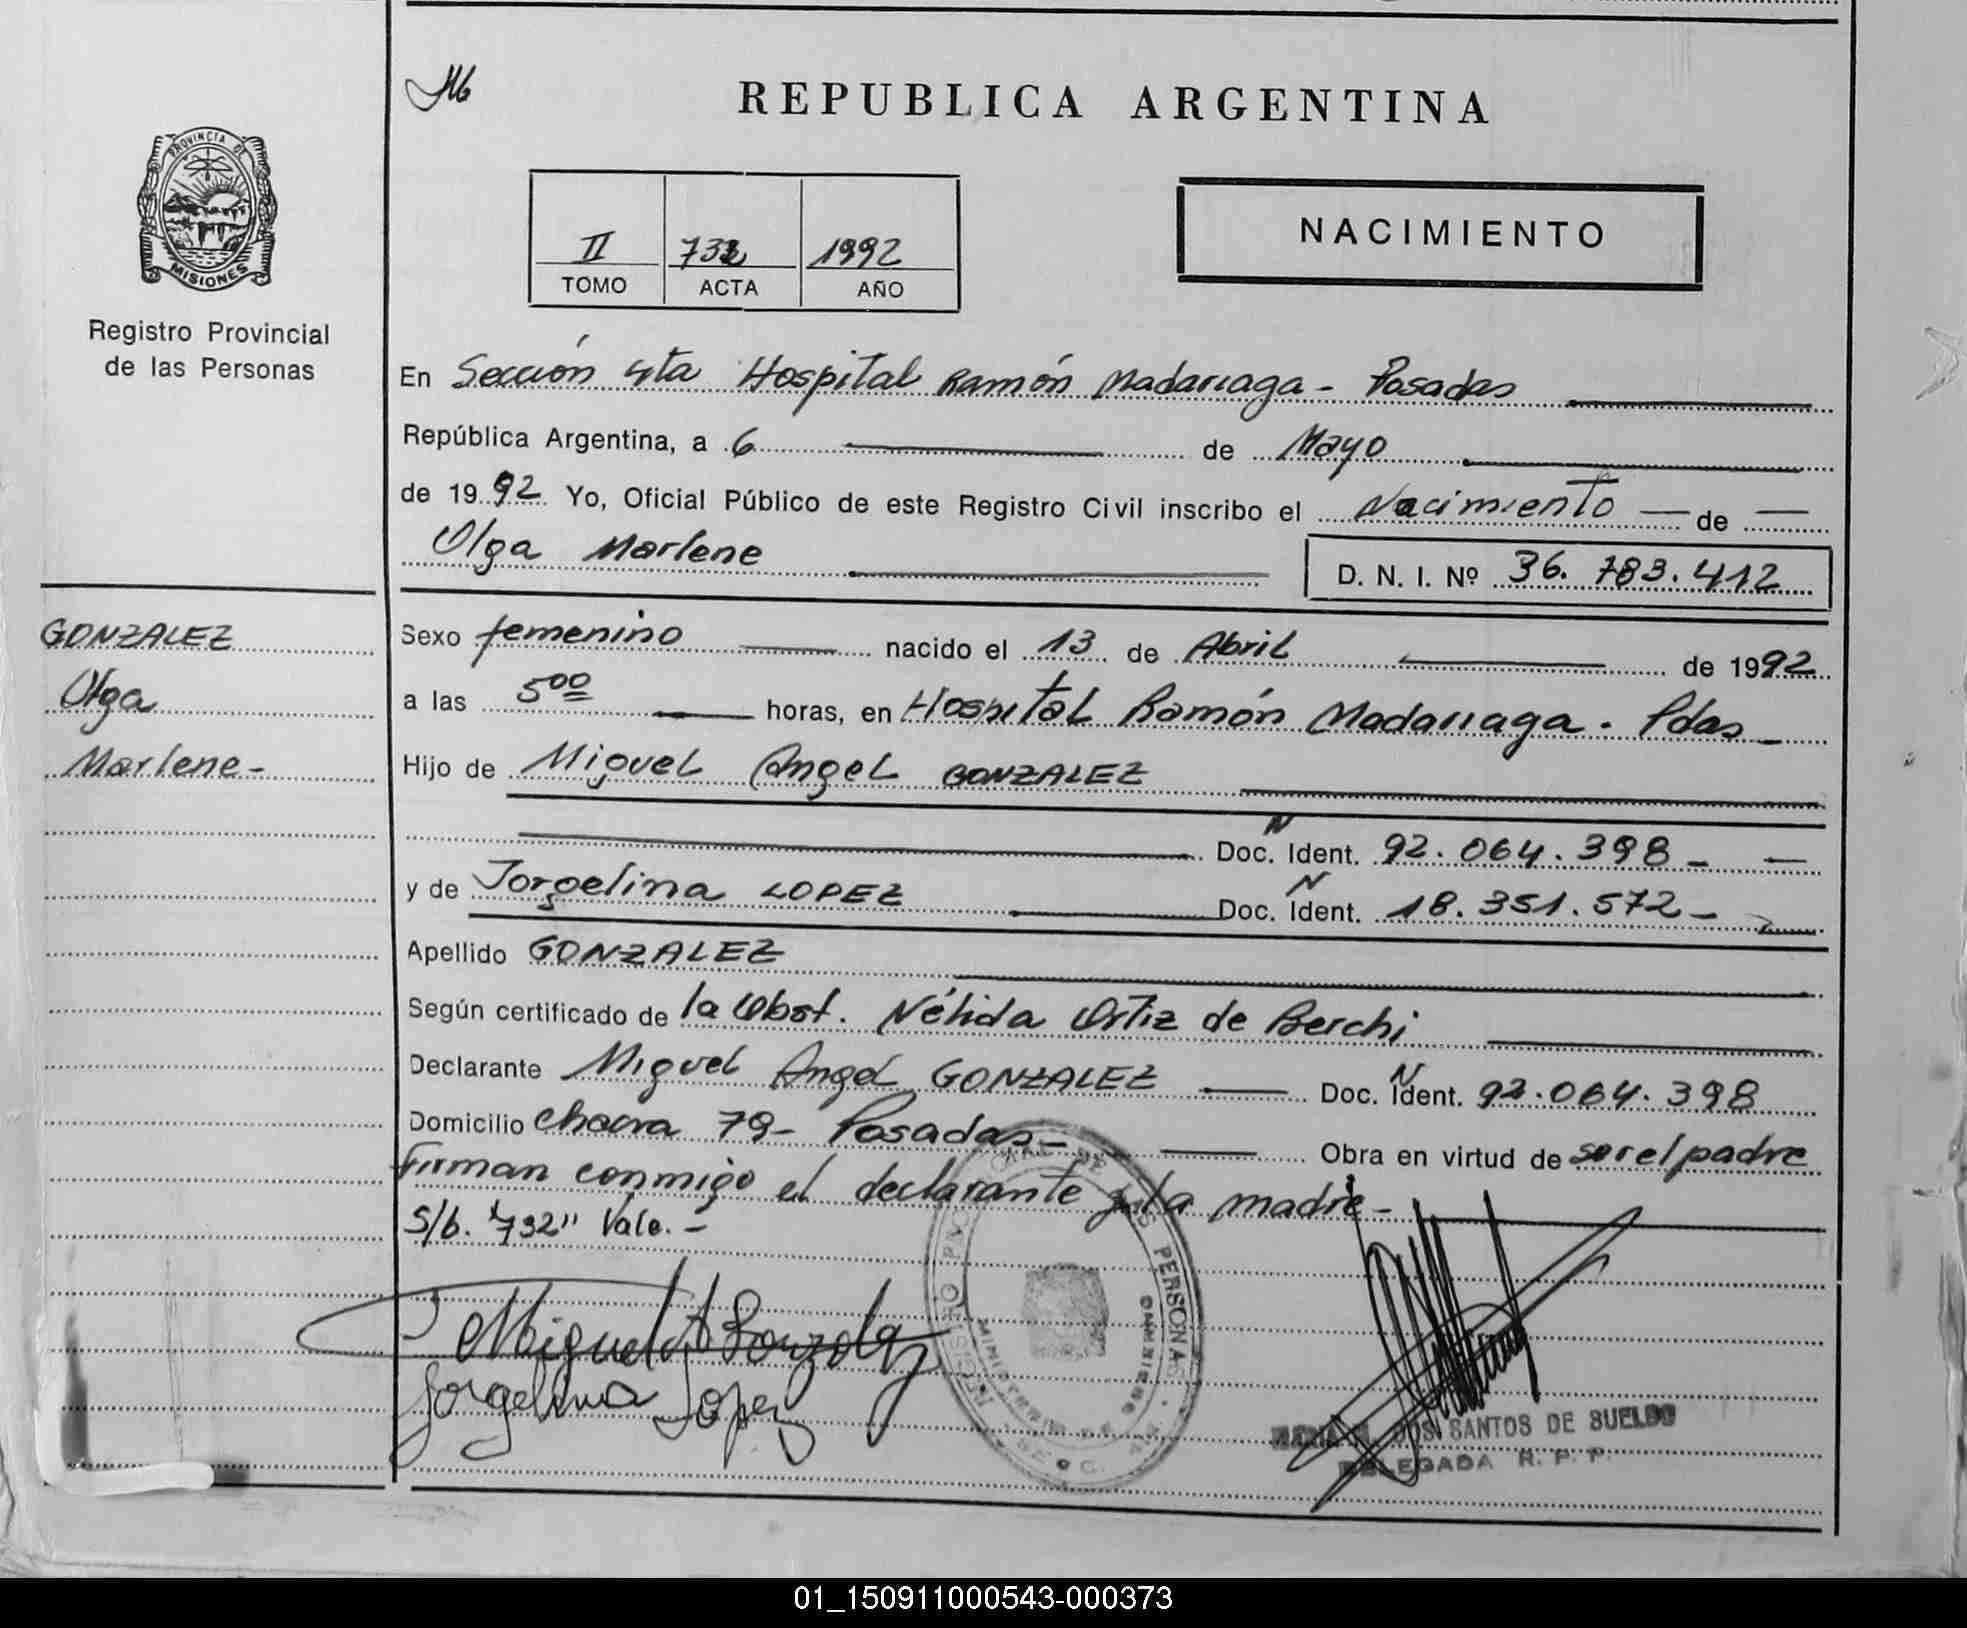 REPUBLICA ARGENTINA
PROVINCIA DE
MISIONES
Registro Provincial
de las Personas
II 732 1992
TOMO ACTA AÑO
NACIMIENTO
En Sección 4ta Hospital Ramón Madariaga - Posadas
República Argentina, a 6 de Mayo
de 1992 Yo, Oficial Público de este Registro Civil inscribo el Nacimiento de
Olga Marlene D. N. I. Nº 36.783.412
GONZALEZ
Olga
Marlene-
Sexo femenino nacido el 13 de Abril de 1992
a las 5 00 horas, en Hospital Ramón Madariaga. Pdas
Hijo de Miguel Angel GONZALEZ
Doc. N Ident. 92.064.398-
y de Jorgelina LOPEZ Doc. N Ident. 18.351.572-
Apellido GONZALEZ
Según certificado de la Obst. Nélida Ortiz de Berchi
Declarante Miguel Angel GONZALEZ Doc. N Ident. 92.064.398
Domicilio Chacra 79- Posadas- Obra en virtud de ser el padre
Firman conmigo el declarante y la madre-
S/b. "732" Vale.-
Miguel A Gonzalez
Jorgelina Lopez
DE LAS PERSONAS
MISIONES
DOS SANTOS DE SUELDO
DELEGADA R. P. P.
01_150911000543-000373